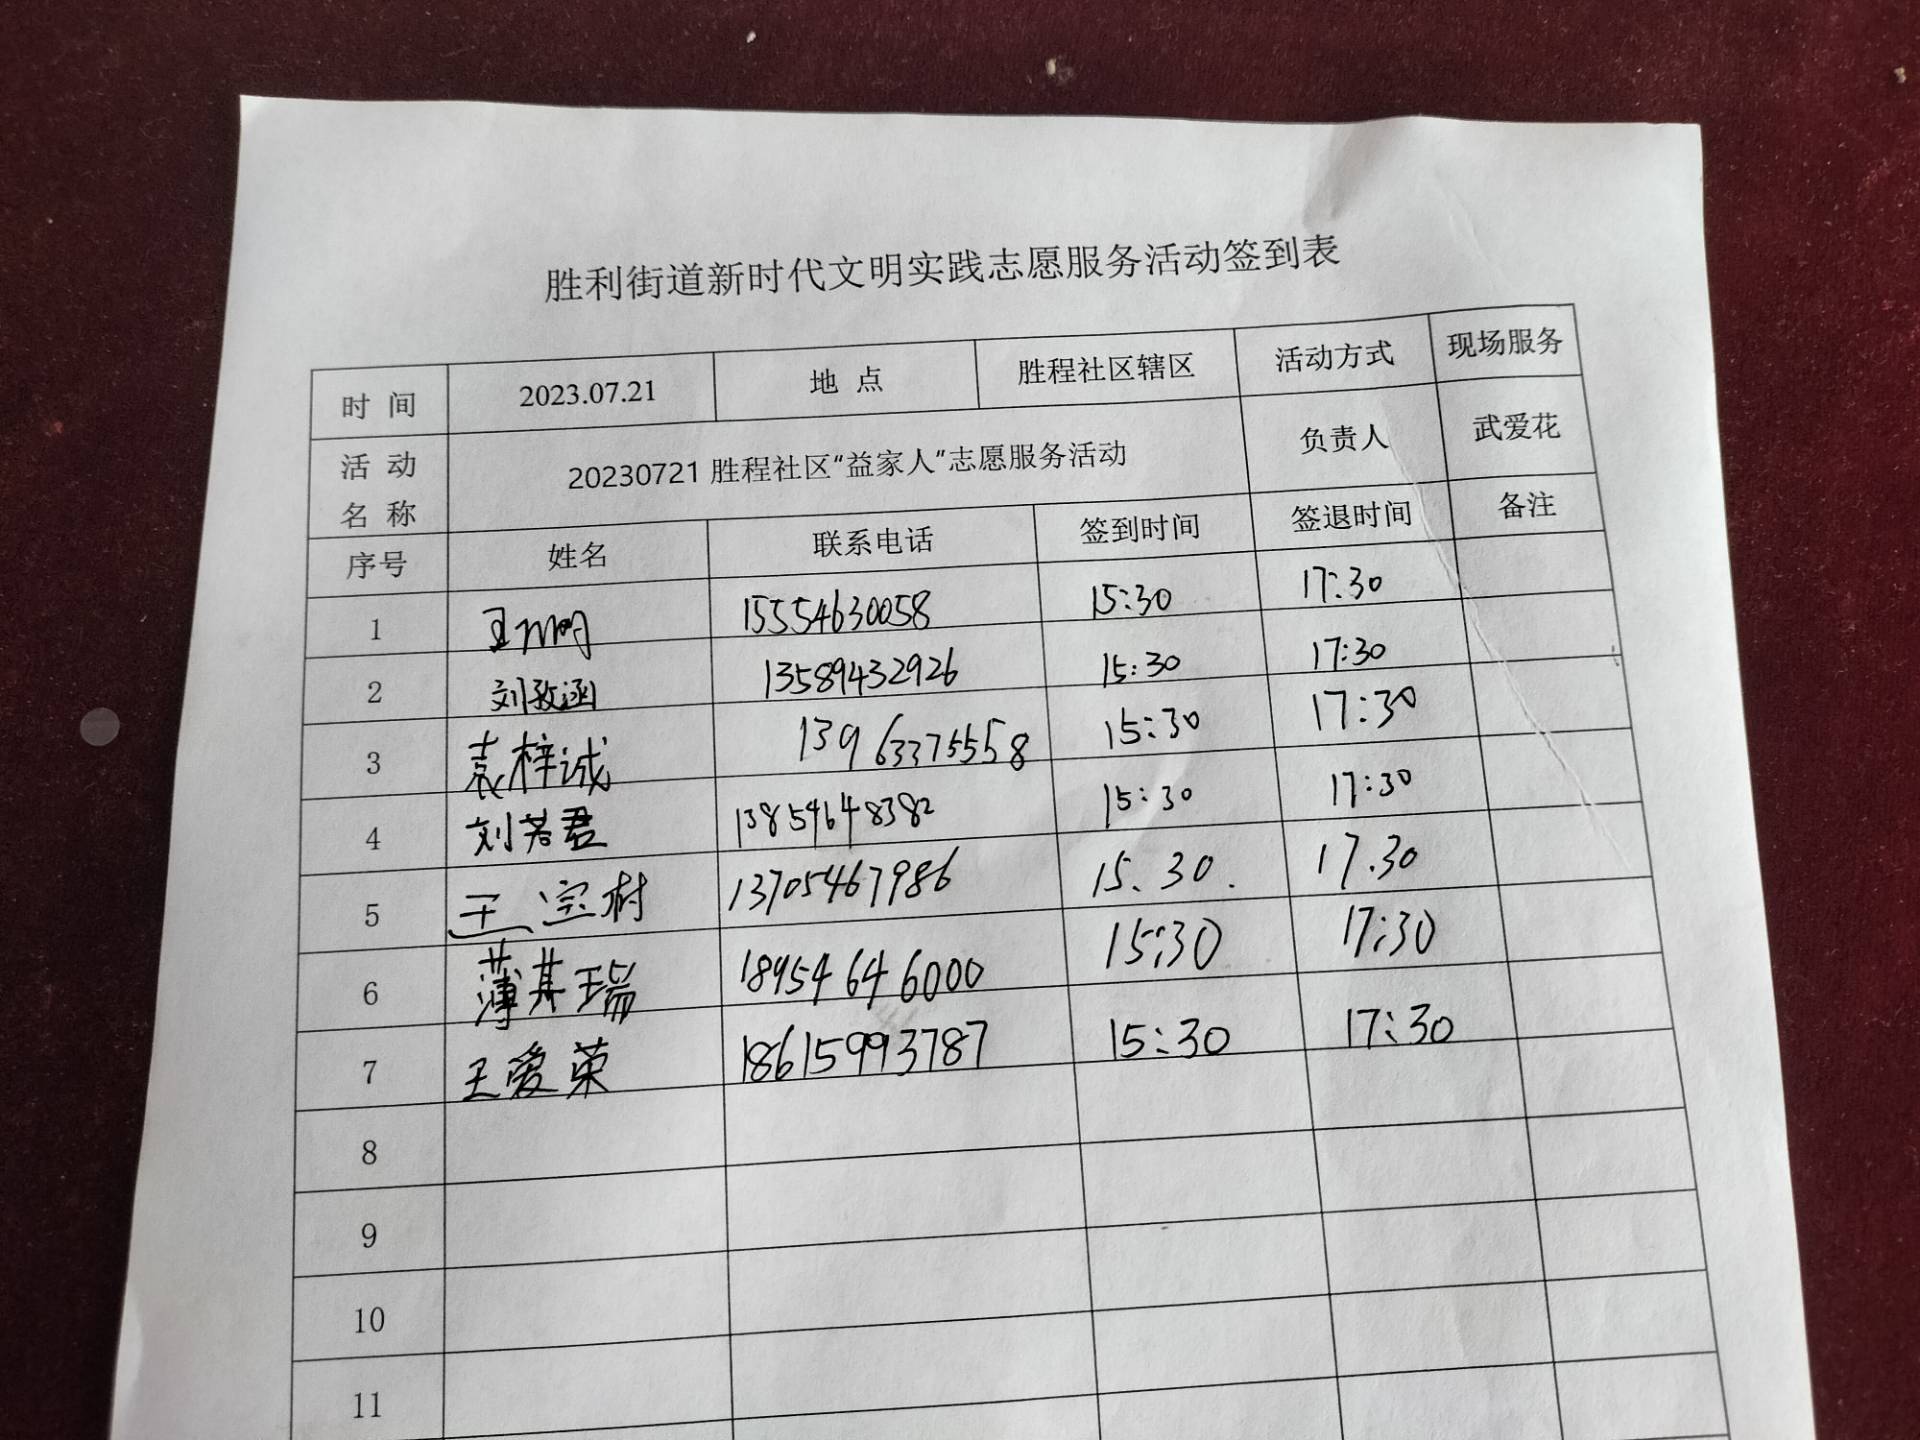 胜利街道新时代文明实践志愿服务活动签到表
时 间 2023.07.21 地 点 胜程社区辖区 活动方式 现场服务
活 动 名 称 20230721 胜程社区“益家人”志愿服务活动 负责人 武爱花
序号 姓名 联系电话 签到时间 签退时间 备注
1 15554630058 15:30 17:30
2 13589432926 15:30 17:30
3 袁梓诚 13963375558 15:30 17:30
4 刘若君 13854648382 15:30 17:30
5 王宝树 13705467986 15.30. 17.30
6 薄其瑞 18954646000 15:30 17:30
7 王爱荣 18615993787 15:30 17:30
8
9
10
11